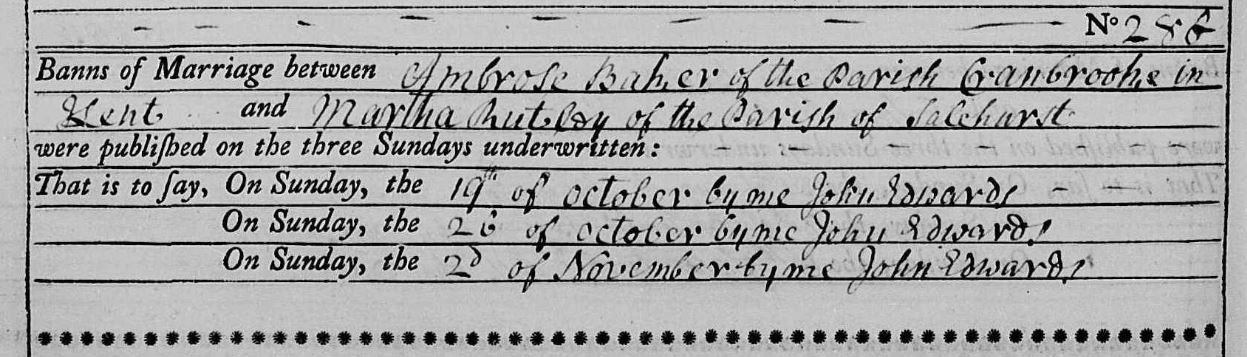 No 286
Banns of Marriage between Ambrose Baker of the Parish Cranbrooke in
Kent and Martha of the Parish of Salehurst
were publiſhed on the three Sundays underwritten:
That is to ſay, On Sunday, the 19th of October by me John Edwards
On Sunday, the 26 of October by me John Edwards
On Sunday, the 2d of November by me John Edwards